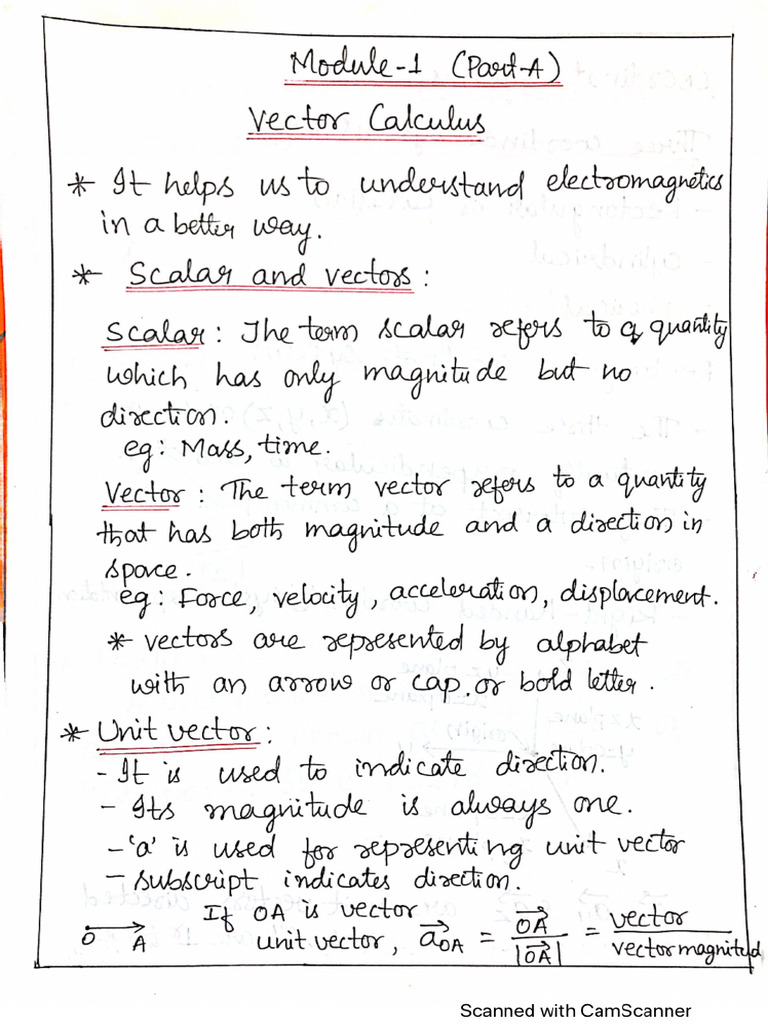 Module-1 (Part-A)
Vector Calculus
* It helps us to understand electromagnetics
in a better way.
* Scalar and vectors :
Scalar : The term scalar refers to a quantity
which has only magnitude but no
direction.
eg: Mass, time.
Vector : The term vector refers to a quantity
that has both magnitude and a direction in
space.
eg: Force, velocity, acceleration, displacement.
* vectors are represented by alphabet
with an arrow or cap. or bold letter.
* Unit vector :
- It is used to indicate direction.
- Its magnitude is always one.
- 'a' is used for representing unit vector
- subscript indicates direction.
O → A If OA is vector
unit vector, a⃗OA = OA⃗ / |OA⃗| = vector / vector magnitud
Scanned with CamScanner